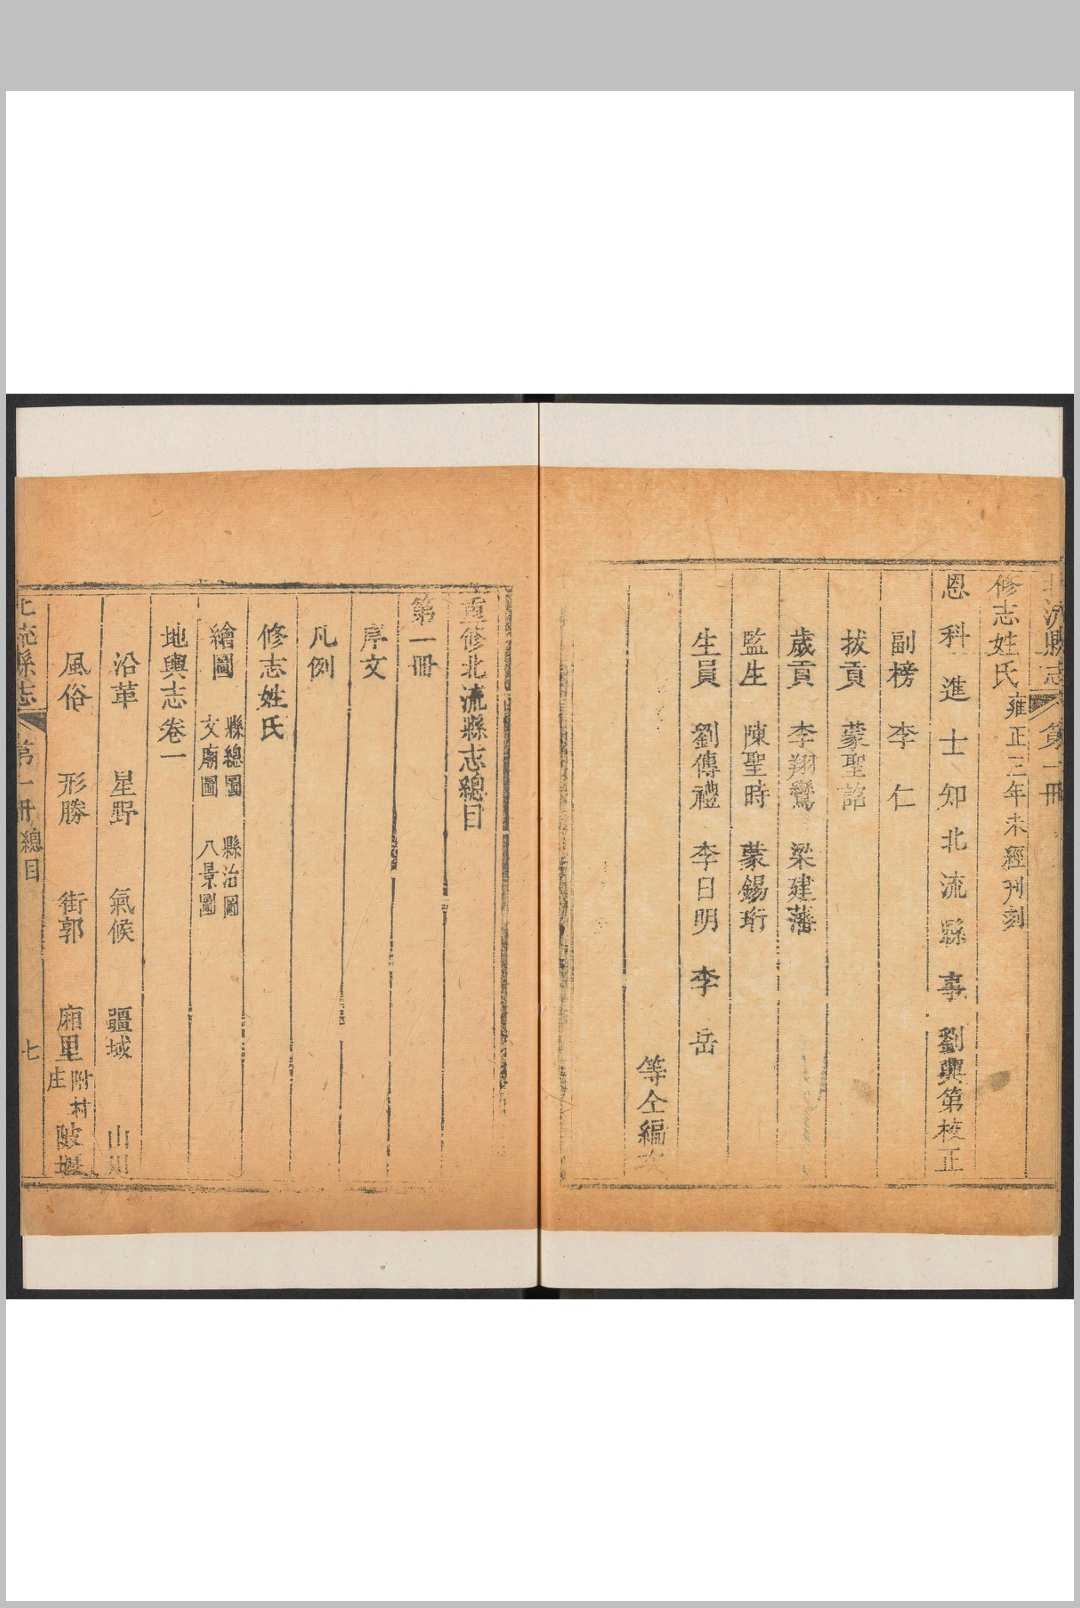 北流縣志 第一冊
修志姓氏 雍正三年未經刋刻
恩科進士知北流縣事劉興第校正
副榜 李仁
拔貢 蒙聖諮
歲貢 李翔鸞 梁建藩
監生 陳聖時 蒙錫珩
生員 劉傳禮 李日明 李岳
等仝編次
重修北流縣志總目
第一冊
序文
凡例
修志姓氏
繪圖 縣總圖 縣治圖
文廟圖 八景圖
地輿志卷一
沿革 星野 氣候 疆域 山川
風俗 形勝 街郭 廂里 附村庄 陂堰
北流縣志 第一冊 總目 七